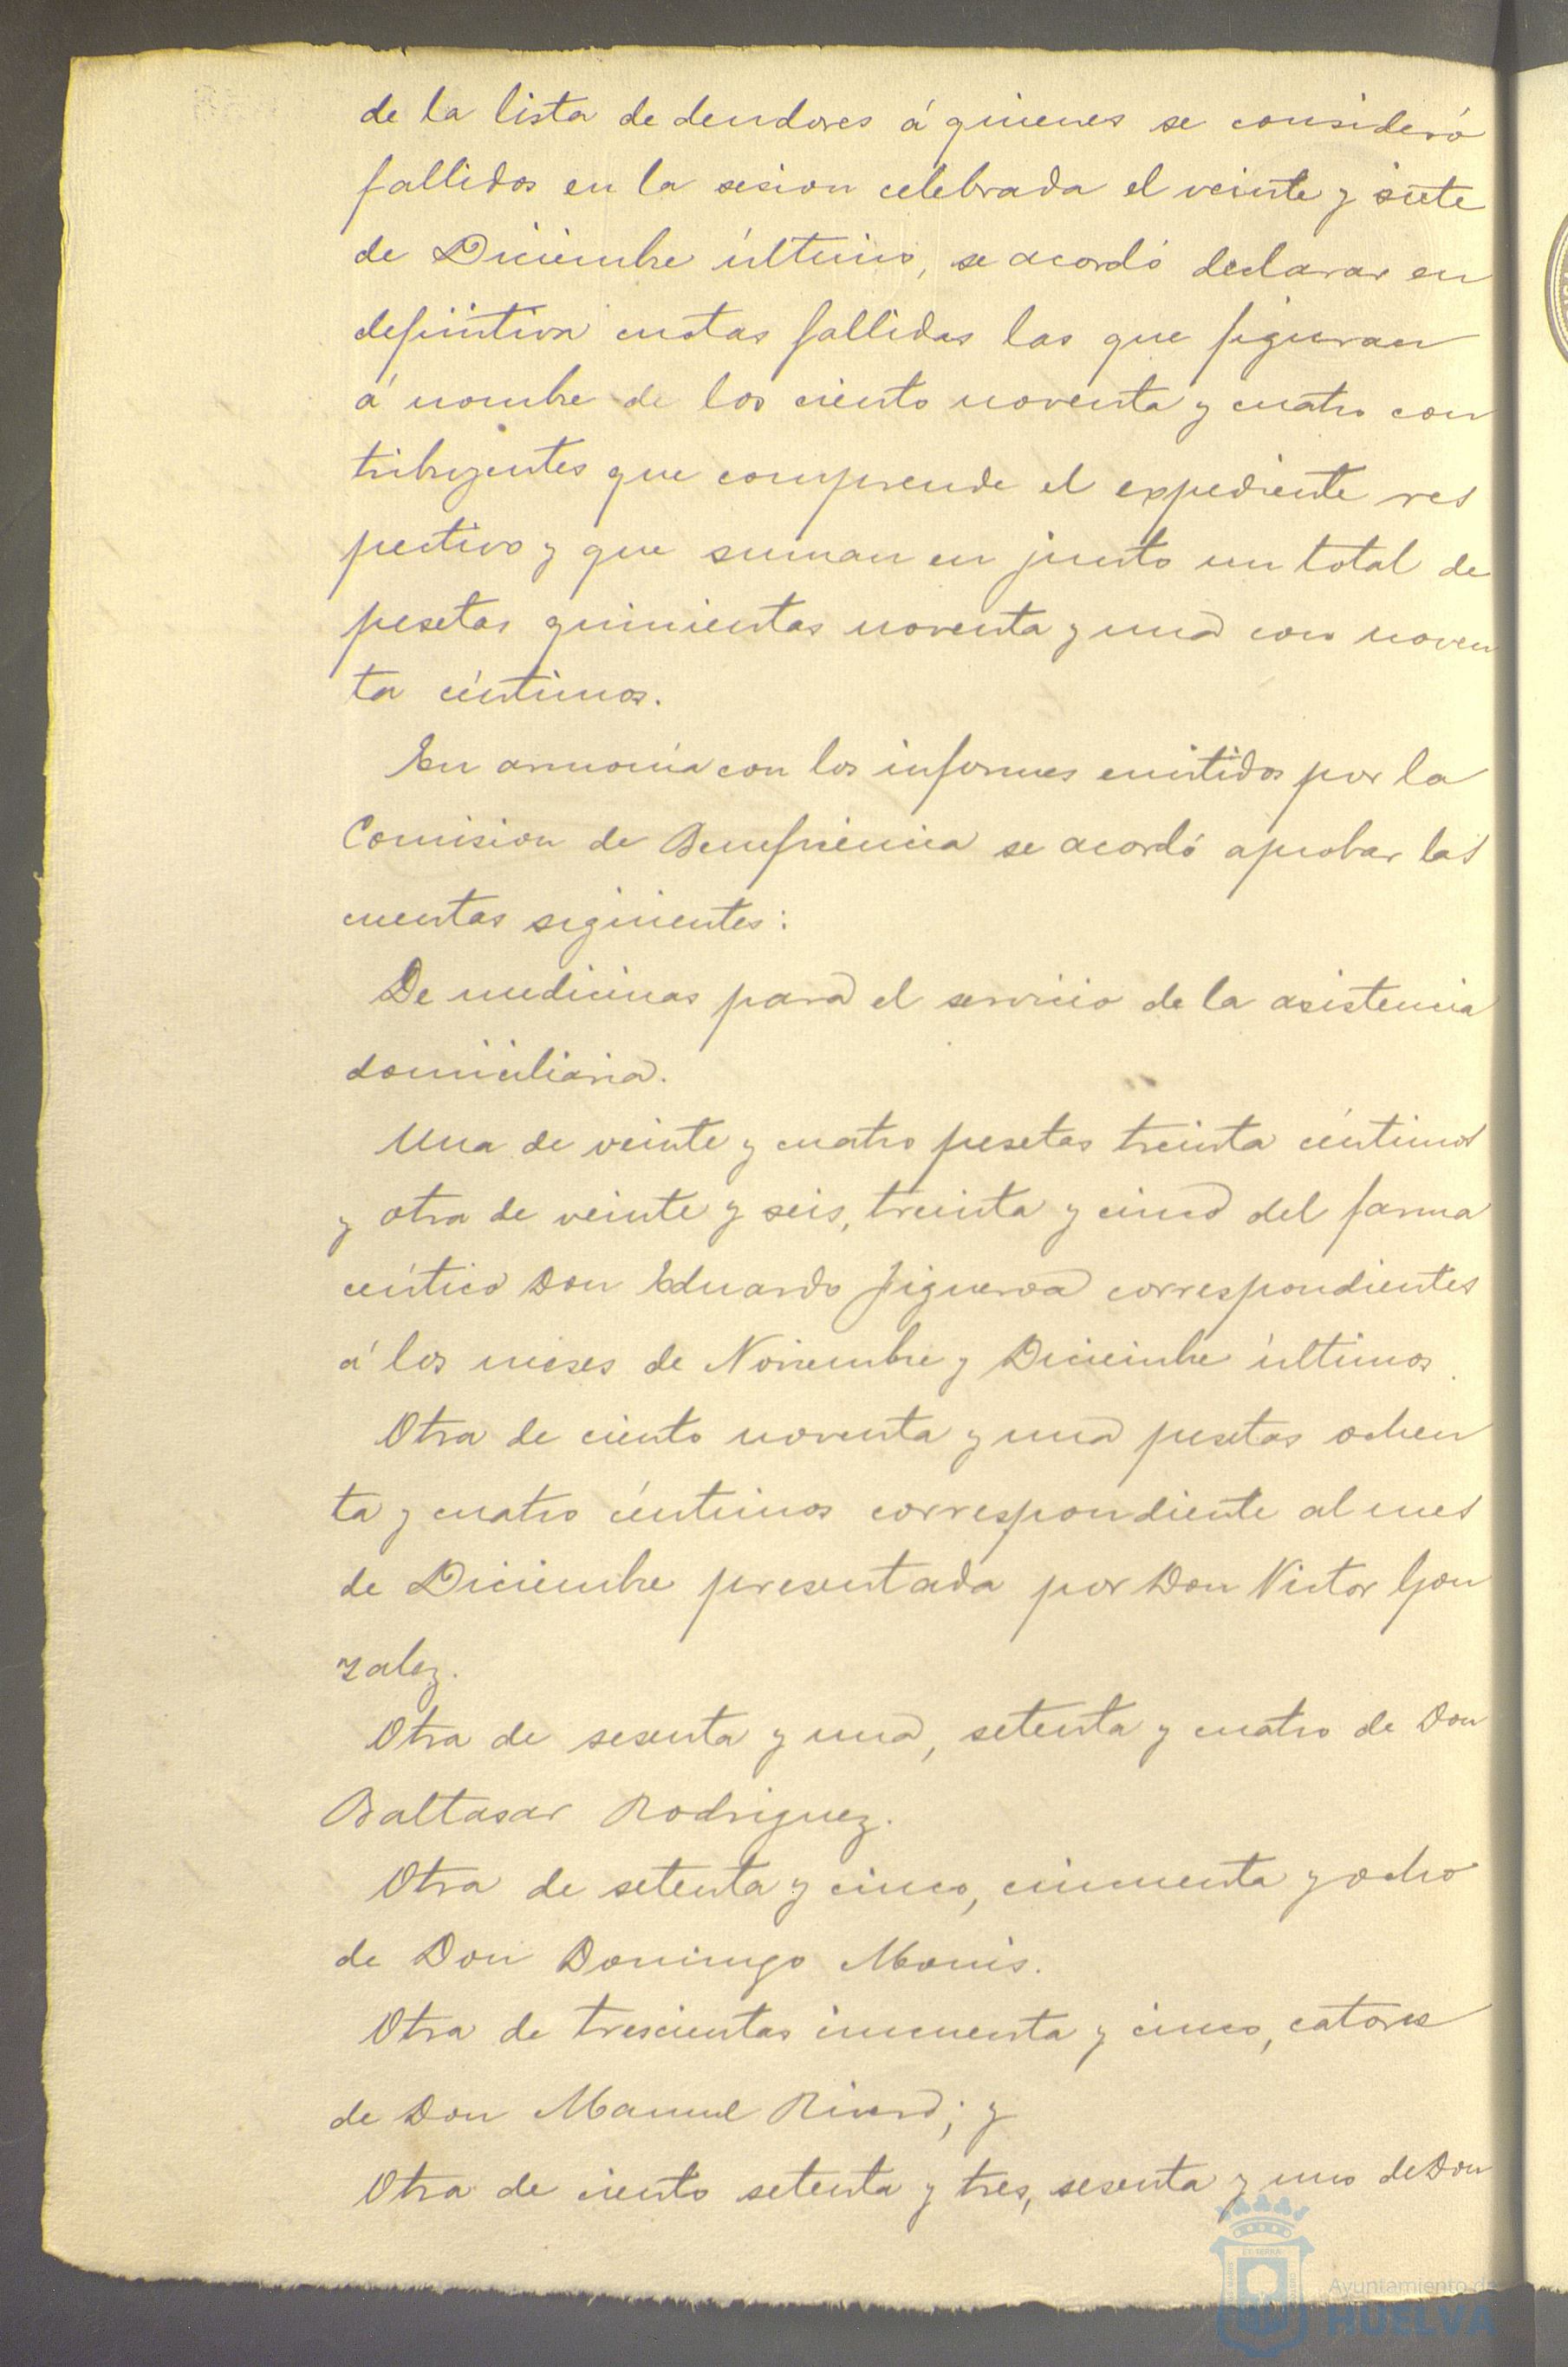 de la lista de deudores á quienes se consideró
fallidos en la sesion celebrada el veinte y siete
de Diciembre último, se acordó declarar en
definitiva cuotas fallidas las que figuran
á nombre de los ciento noventa y cuatro con
tribuyentes que comprende el expediente res
pectivo y que suman en junto un total de
pesetas quinientas noventa y una con noven
ta céntimos.
En armonía con los informes emitidos por la
Comision de Beneficencia se acordó aprobar las
cuentas siguientes:
De medicinas para el servicio de la asistencia
domiciliaria.
Una de veinte y cuatro pesetas treinta céntimos
y otra de veinte y seis, treinta y cinco del farma
céutico Don Eduardo Figueroa correspondientes
á los meses de Noviembre y Diciembre últimos.
Otra de ciento noventa y una pesetas ochen
ta y cuatro céntimos correspondiente al mes
de Diciembre presentada por Don Victor Gon
zalez.
Otra de sesenta y una, setenta y cuatro de Don
Baltasar Rodriguez.
Otra de setenta y cinco, cincuenta y ocho
de Don Domingo Monis.
Otra de trescientas cincuenta y cinco, catorce
de Don Manuel ; y
Otra de ciento setenta y tres, sesenta y uno de Don
Ayuntamiento de
HUELVA